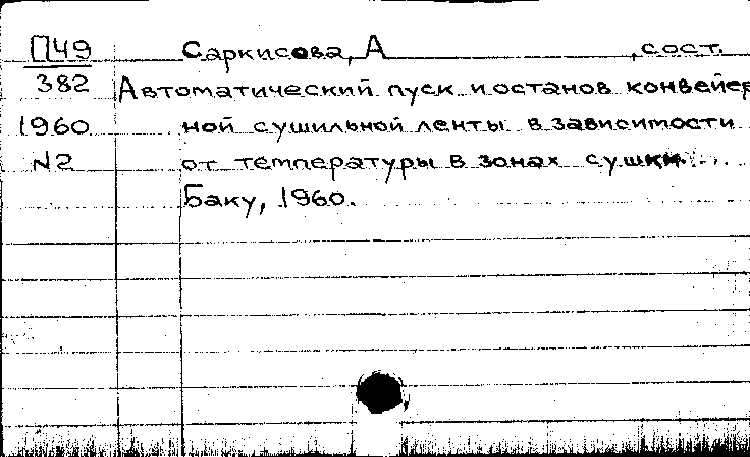 П49 Саркисова, А , сост.
382 Автоматический пуск и останов конвейер
1960 ной сушильной ленты в зависимости
N2 от температуры в зонах сушки.
Баку, 1960.